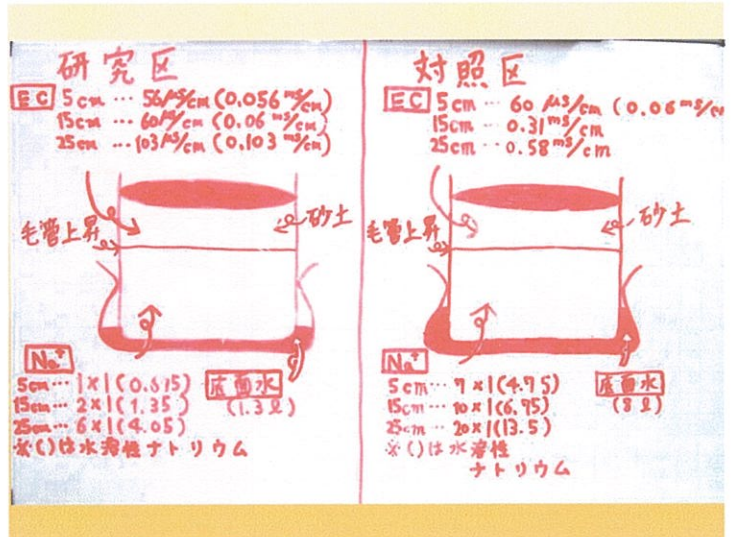 研究区
EC 5cm … 56μS/cm (0.056 mS/cm)
15cm … 60μS/cm (0.06 mS/cm)
25cm … 103μS/cm (0.103 mS/cm)
砂土
毛管上昇
Na⁺
5cm … 1×1(0.675)
15cm … 2×1(1.35)
25cm … 6×1(4.05)
※()は水溶性ナトリウム
底面水
(1.3ℓ)
対照区
EC 5cm … 60 μS/cm (0.06 mS/cm
15cm … 0.31 mS/cm
25cm … 0.58 mS/cm
砂土
毛管上昇
Na⁺
5cm … 7×1(4.75)
15cm … 10×1(6.75)
25cm … 20×1(13.5)
※()は水溶性
ナトリウム
底面水
(8ℓ)